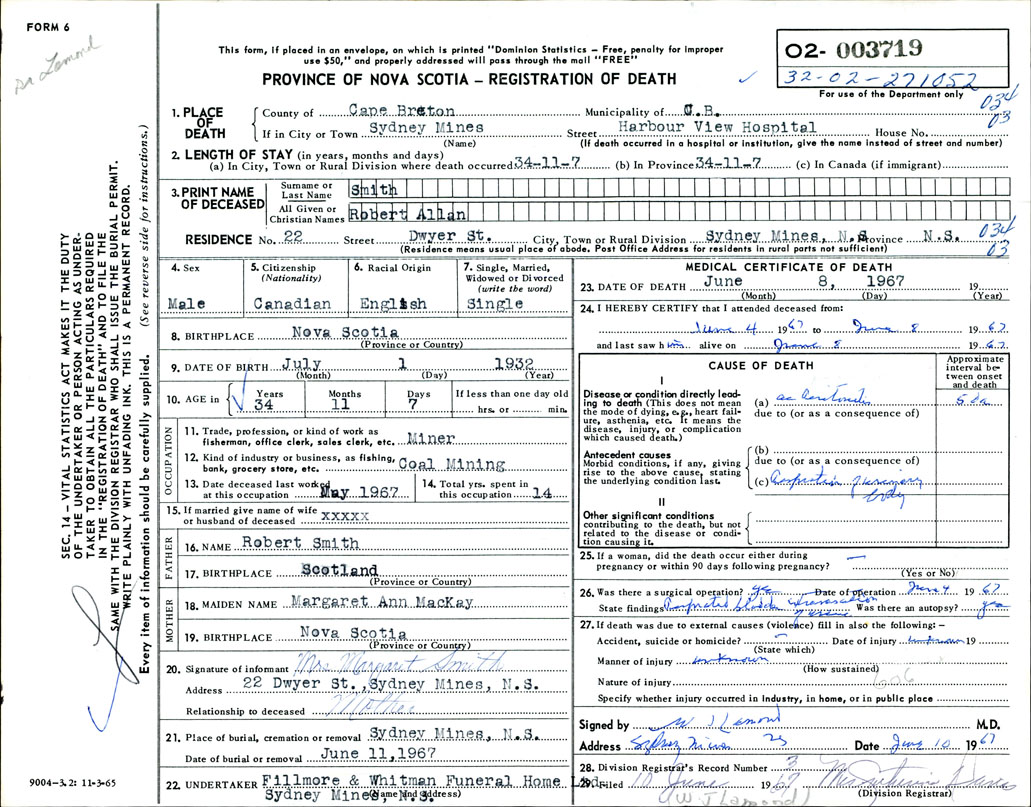 FORM 6
Dr Lamond
This form, if placed in an envelope, on which is printed "Dominion Statistics – Free, penalty for improper
use $50," and properly addressed will pass through the mail "FREE"
PROVINCE OF NOVA SCOTIA – REGISTRATION OF DEATH
02- 003719
32-02-271052
For use of the Department only
034
03
SEC. 14 – VITAL STATISTICS ACT MAKES IT THE DUTY
OF THE UNDERTAKER OR PERSON ACTING AS UNDER-
TAKER TO OBTAIN ALL THE PARTICULARS REQUIRED
IN THE "REGISTRATION OF DEATH" AND TO FILE THE
SAME WITH THE DIVISION REGISTRAR WHO SHALL ISSUE THE BURIAL PERMIT.
WRITE PLAINLY WITH UNFADING INK. THIS IS A PERMANENT RECORD.
Every item of information should be carefully supplied. (See reverse side for instructions.)
1. PLACE OF DEATH County of Cape Breton Municipality of C.B.
If in City or Town Sydney Mines Street Harbour View Hospital House No.
(Name) (If death occurred in a hospital or institution, give the name instead of street and number)
2. LENGTH OF STAY (in years, months and days)
(a) In City, Town or Rural Division where death occurred 34-11-7 (b) In Province 34-11-7 (c) In Canada (if immigrant)
3. PRINT NAME OF DECEASED Surname or Last Name Smith
All Given or Christian Names Robert Allan
RESIDENCE No. 22 Street Dwyer St. City, Town or Rural Division Sydney Mines, N.S. Province N.S. 034
(Residence means usual place of abode. Post Office Address for residents in rural parts not sufficient) 03
4. Sex Male
5. Citizenship (Nationality) Canadian
6. Racial Origin English
7. Single, Married, Widowed or Divorced (write the word) Single
8. BIRTHPLACE Nova Scotia
(Province or Country)
9. DATE OF BIRTH July 1 1932
(Month) (Day) (Year)
10. AGE in Years 34 Months 11 Days 7 If less than one day old hrs. or min.
OCCUPATION
11. Trade, profession, or kind of work as
fisherman, office clerk, sales clerk, etc. Miner
12. Kind of industry or business, as fishing,
bank, grocery store, etc. Coal Mining
13. Date deceased last worked at this occupation May 1967
14. Total yrs. spent in this occupation 14
15. If married give name of wife
or husband of deceased xxxxx
FATHER
16. NAME Robert Smith
17. BIRTHPLACE Scotland
(Province or Country)
MOTHER
18. MAIDEN NAME Margaret Ann MacKay
19. BIRTHPLACE Nova Scotia
(Province or Country)
20. Signature of informant Mrs Margaret Smith
Address 22 Dwyer St., Sydney Mines, N.S.
Relationship to deceased Mother
21. Place of burial, cremation or removal Sydney Mines, N.S.
Date of burial or removal June 11,1967
22. UNDERTAKER Fillmore & Whitman Funeral Home Ltd.
Sydney Mines, N.S.
(Name and Address)
9004-3.2: 11-3-65
MEDICAL CERTIFICATE OF DEATH
23. DATE OF DEATH June 8, 1967 19
(Month) (Day) (Year)
24. I HEREBY CERTIFY that I attended deceased from:
June 4 1967 to June 8 1967
and last saw him alive on June 8 1967
CAUSE OF DEATH
Approximate interval between onset and death
I
Disease or condition directly lead-
ing to death (This does not mean
the mode of dying, e.g., heart fail-
ure, asthenia, etc. It means the
disease, injury, or complication
which caused death.)
(a) ac Peritonitis 5 da
due to (or as a consequence of)
Antecedent causes
Morbid conditions, if any, giving
rise to the above cause, stating
the underlying condition last.
(b)
due to (or as a consequence of)
(c)
II
Other significant conditions
contributing to the death, but not
related to the disease or condi-
tion causing it.
25. If a woman, did the death occur either during
pregnancy or within 90 days following pregnancy? —
(Yes or No)
26. Was there a surgical operation? yes Date of operation June 4 1967
State findings bladder Was there an autopsy? yes
27. If death was due to external causes (violence) fill in also the following: –
Accident, suicide or homicide? – Date of injury unknown 19
(State which)
Manner of injury unknown
(How sustained)
Nature of injury
Specify whether injury occurred in industry, in home, or in public place
Signed by W J Lamond M.D.
Address Sydney Mines NS Date June 10 1967
28. Division Registrar's Record Number 3
29. Filed 10 June 1967
(Division Registrar)
(W J Lamond)